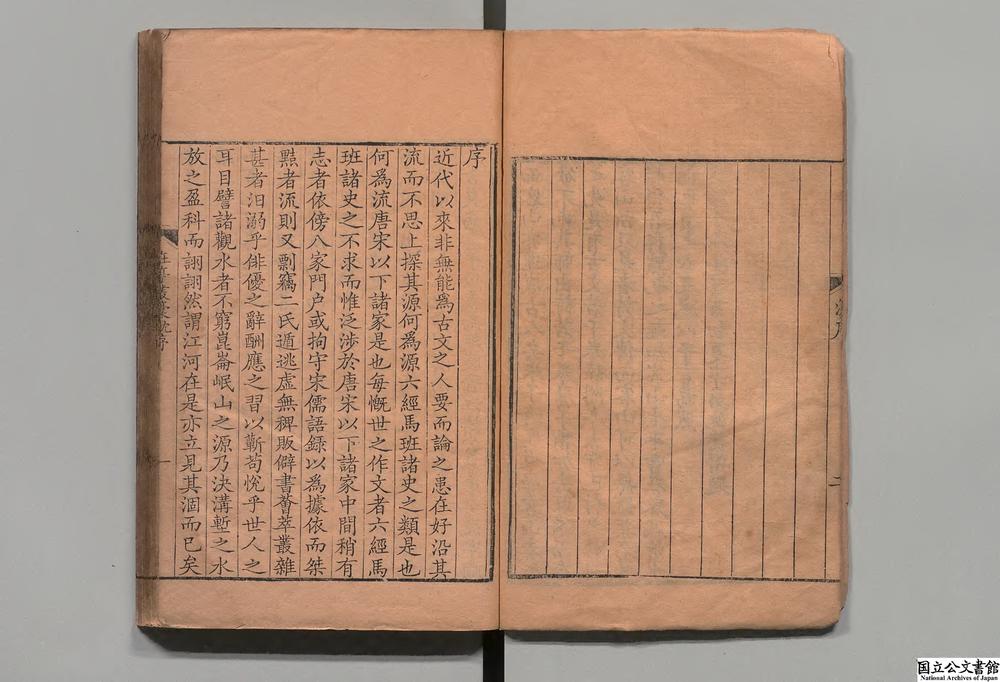 序
近代以來非無能爲古文之人要而論之患在好沿其
流而不思上探其源何爲源六經馬班諸史之類是也
何爲流唐宋以下諸家是也每慨世之作文者六經馬
班諸史之不求而惟泛涉於唐宋以下諸家中間稍有
志者依傍八家門户或拘守宋儒語録以爲據依而桀
黠者流則又剽竊二氏遁逃虛無稗販僻書薈萃叢雜
甚者汨溺乎俳優之辭酬應之習以蘄苟悅乎世人之
耳目譬諸觀水者不窮崑崙岷山之源乃決溝塹之水
放之盈科而詡詡然謂江河在是亦立見其涸而已矣
序
一
二
国立公文書館
National Archives of Japan